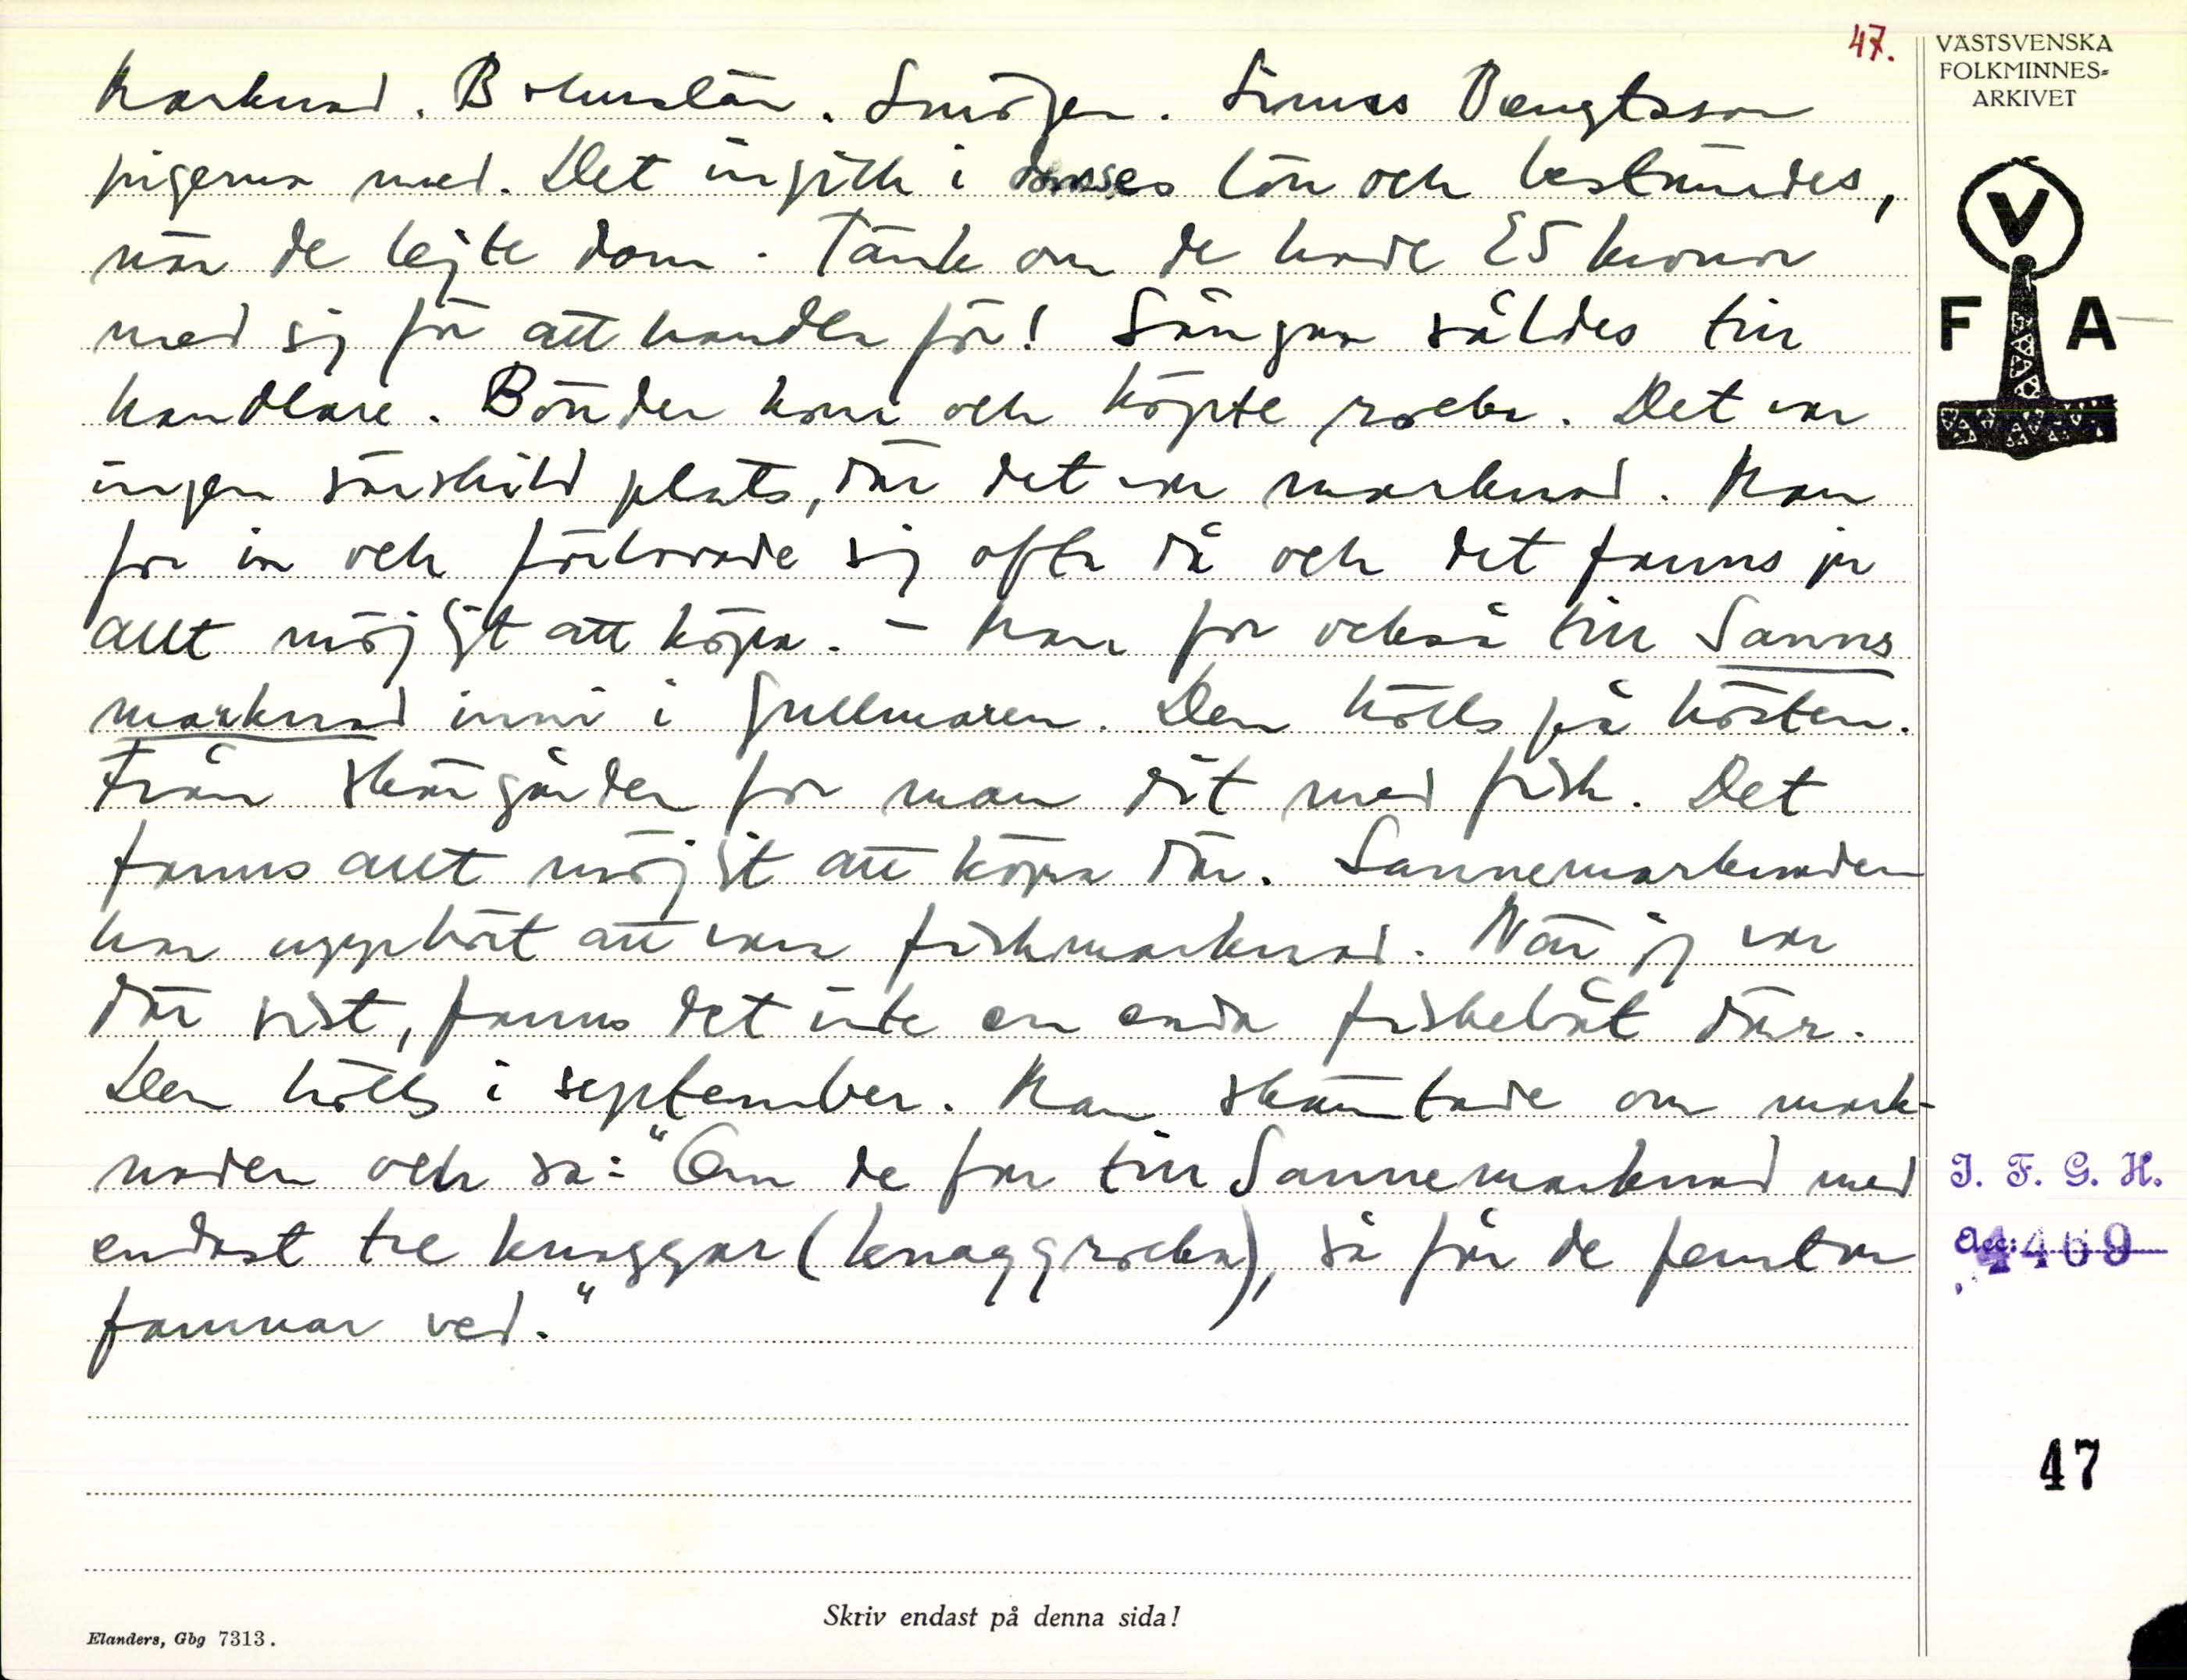 47.
Marknad. Bohuslän. Smögen. Simus Bengtsson
pigerna med. Det ingick i dessas lön och bestämdes,
när de lejte dom. Tänk om de hade 25 kronor
med sig för att handla för! Fångan såldes till
handlare. Bönder kom och köpte rocka. Det var
ingen särskild plats, där det var marknad. Man
for in och förlovade sig ofta då och det fanns ju
allt möjligt att köpa. - Man for också till Sanns
marknad inne i Gullmaren. Den hölls på hösten.
Från skärgården for man dit med fisk. Det
fanns allt möjlit att köpa där. Sannemarknaden
har upphört att vara fiskmarknad. När jag var
där sist, fanns det inte en enda fiskebåt där.
Den hölls i september. Man skämtade om mark-
naden och sa: "Om de far till Sannemarknad med
endast tre knaggar (knaggrocka), så får de femton
famnar ved."
VÄSTSVENSKA
FOLKMINNES-
ARKIVET
V
F A
I. F. G. H.
Acc: 4469
47
Skriv endast på denna sida!
Elanders, Gbg 7313.